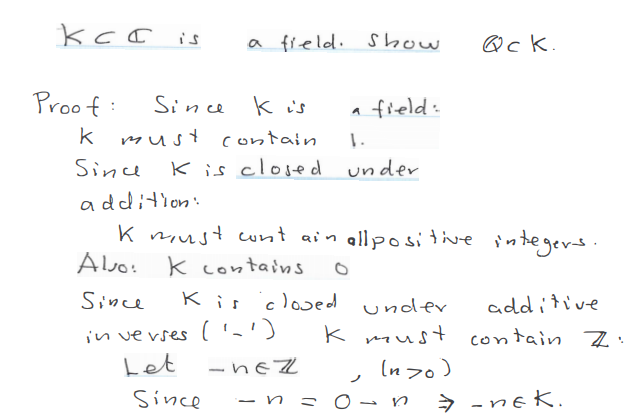 K ⊂ ℂ is a field. Show ℚ ⊂ K.
Proof: Since K is a field:
K must contain 1.
Since K is closed under
addition:
K must contain all positive integers.
Also: K contains 0
Since K is closed under additive
inverses ('-') K must contain ℤ:
Let -n ∈ ℤ, (n>0)
Since -n = 0 - n ⇒ -n ∈ K.